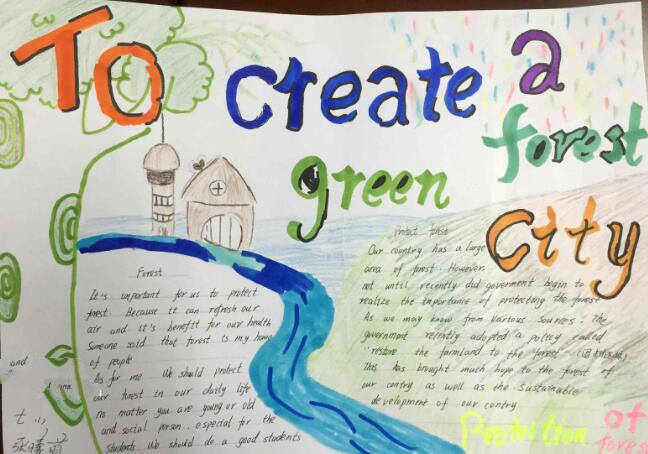 To create a
green forest
city
Forest
It's important for us to protect
forest. Because it can refresh our
air and it's benefit for our health
Someone said that forest is my home
of people
As for me We should protect
our forest in our daily life
no matter you are young or old
and social person. especial for the
students. We should do a good students
Our country has a large
area of forest. However
not until recently did goverment begin to
realize the importance of protecting the forest
As we may know from various sources: The
government recently adopted a policy called
"restore the farmland to the forest"
This has brought much hope to the forest of
our contry as well as the sustainable
development of our contry
and
Protection of
forest